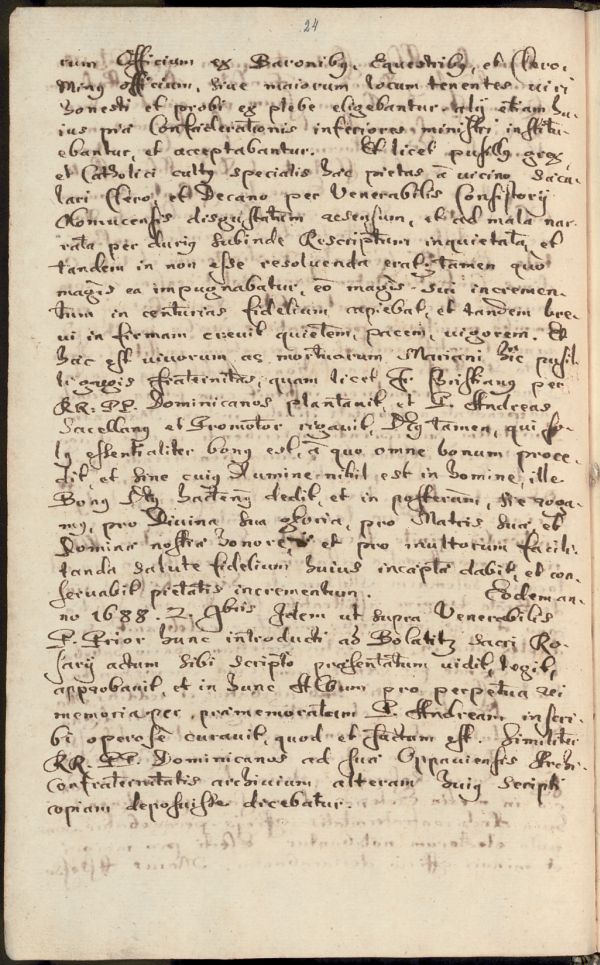 24
rum Officium ex Baronibus, Equestribus, et Clero,
Minus officium, sive maiorum locum tenentes viri
honesti et probi ex plebe eligebantur, alij etiam hu-
ius piæ Confœderationis inferiores ministri institu-
ebantur, et acceptabantur. Et licet pusillus grex,
et Catholici cultus specialis hæc pietas à vicino sæcu-
lari Clero, et Decano per Venerabilis Consistorij
Olomucensis disgustatum assensum, et ad mala nar-
rata per durius subinde Rescriptum inquietata, et
tandem in non esse resolvenda erat; tamen quò
magis ea impugnabatur, eò magis sui incremen-
tum in centurias fidelium capiebat, et tandem bre-
vi in firmam crevit quietem, pacem, vigorem. Et
hæc est vivorum ac mortuorum Mariani hîc pusil-
li gregis fraternitas, quam licet Fr. Cristianus per
RR. PP. Dominicanos plantavit, et P. Andreas
Sacellanus et Promotor rigavit, Deus tamen, qui so-
lus essentialiter bonus est, à quo omne bonum proce-
dit, et sine cuius Numine nihil est in homine, ille
Bonus Deus hactenus dedit, et in posterum, sic roga-
mus, pro Divina sua gloria, pro Matris suæ, et
Dominæ nostræ honore, et pro multorum facili-
tanda salute fidelium huius incæptæ dabit, et con-
servabit pietatis incrementum. Eodem an-
no 1688. 2. 9bris Idem ut supra Venerabilis
P. Prior hunc introducti ad Bolatitz sacri Ro-
sarij actum sibi scripto præsentatum vidit, legit,
approbavit, et in hunc Album pro perpetua rei
memoria per præmemoratum P. Andream inscri-
bi operosè curavit, quod et factum est. Similiter
RR. PP. Dominicanos ad sui Oppaviensis Archi-
Confraternitatis archivium alteram huius scripti
copiam deposuisse dicebatur.